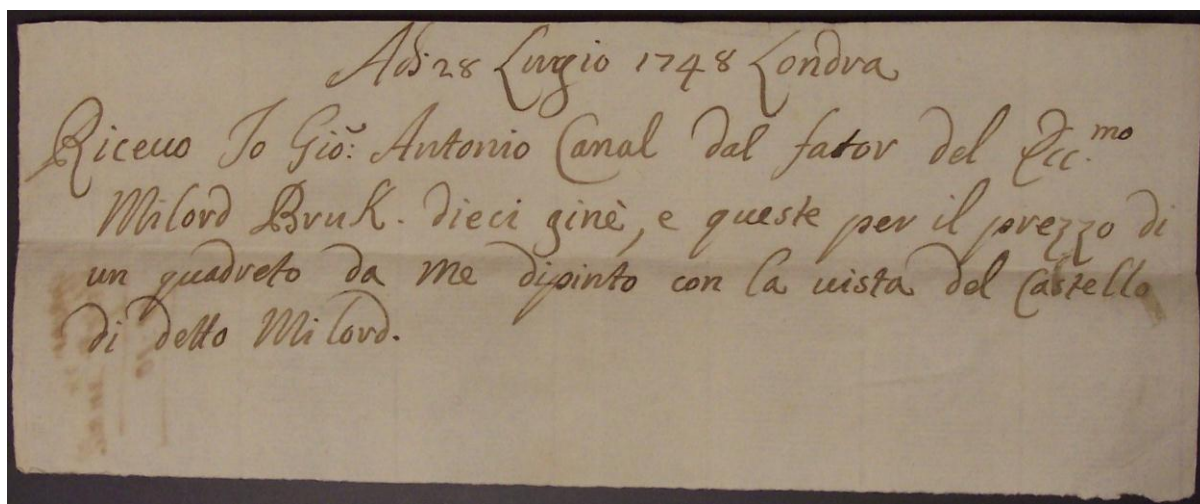 Adi 28 Luugio 1748 Londra
Riceuo Io Gio: Antonio Canal dal fator del Ecc.mo
Milord Bruk. dieci ginè, e queste per il prezzo di
un quadreto da me dipinto con la uista del Castello
di detto Milord.